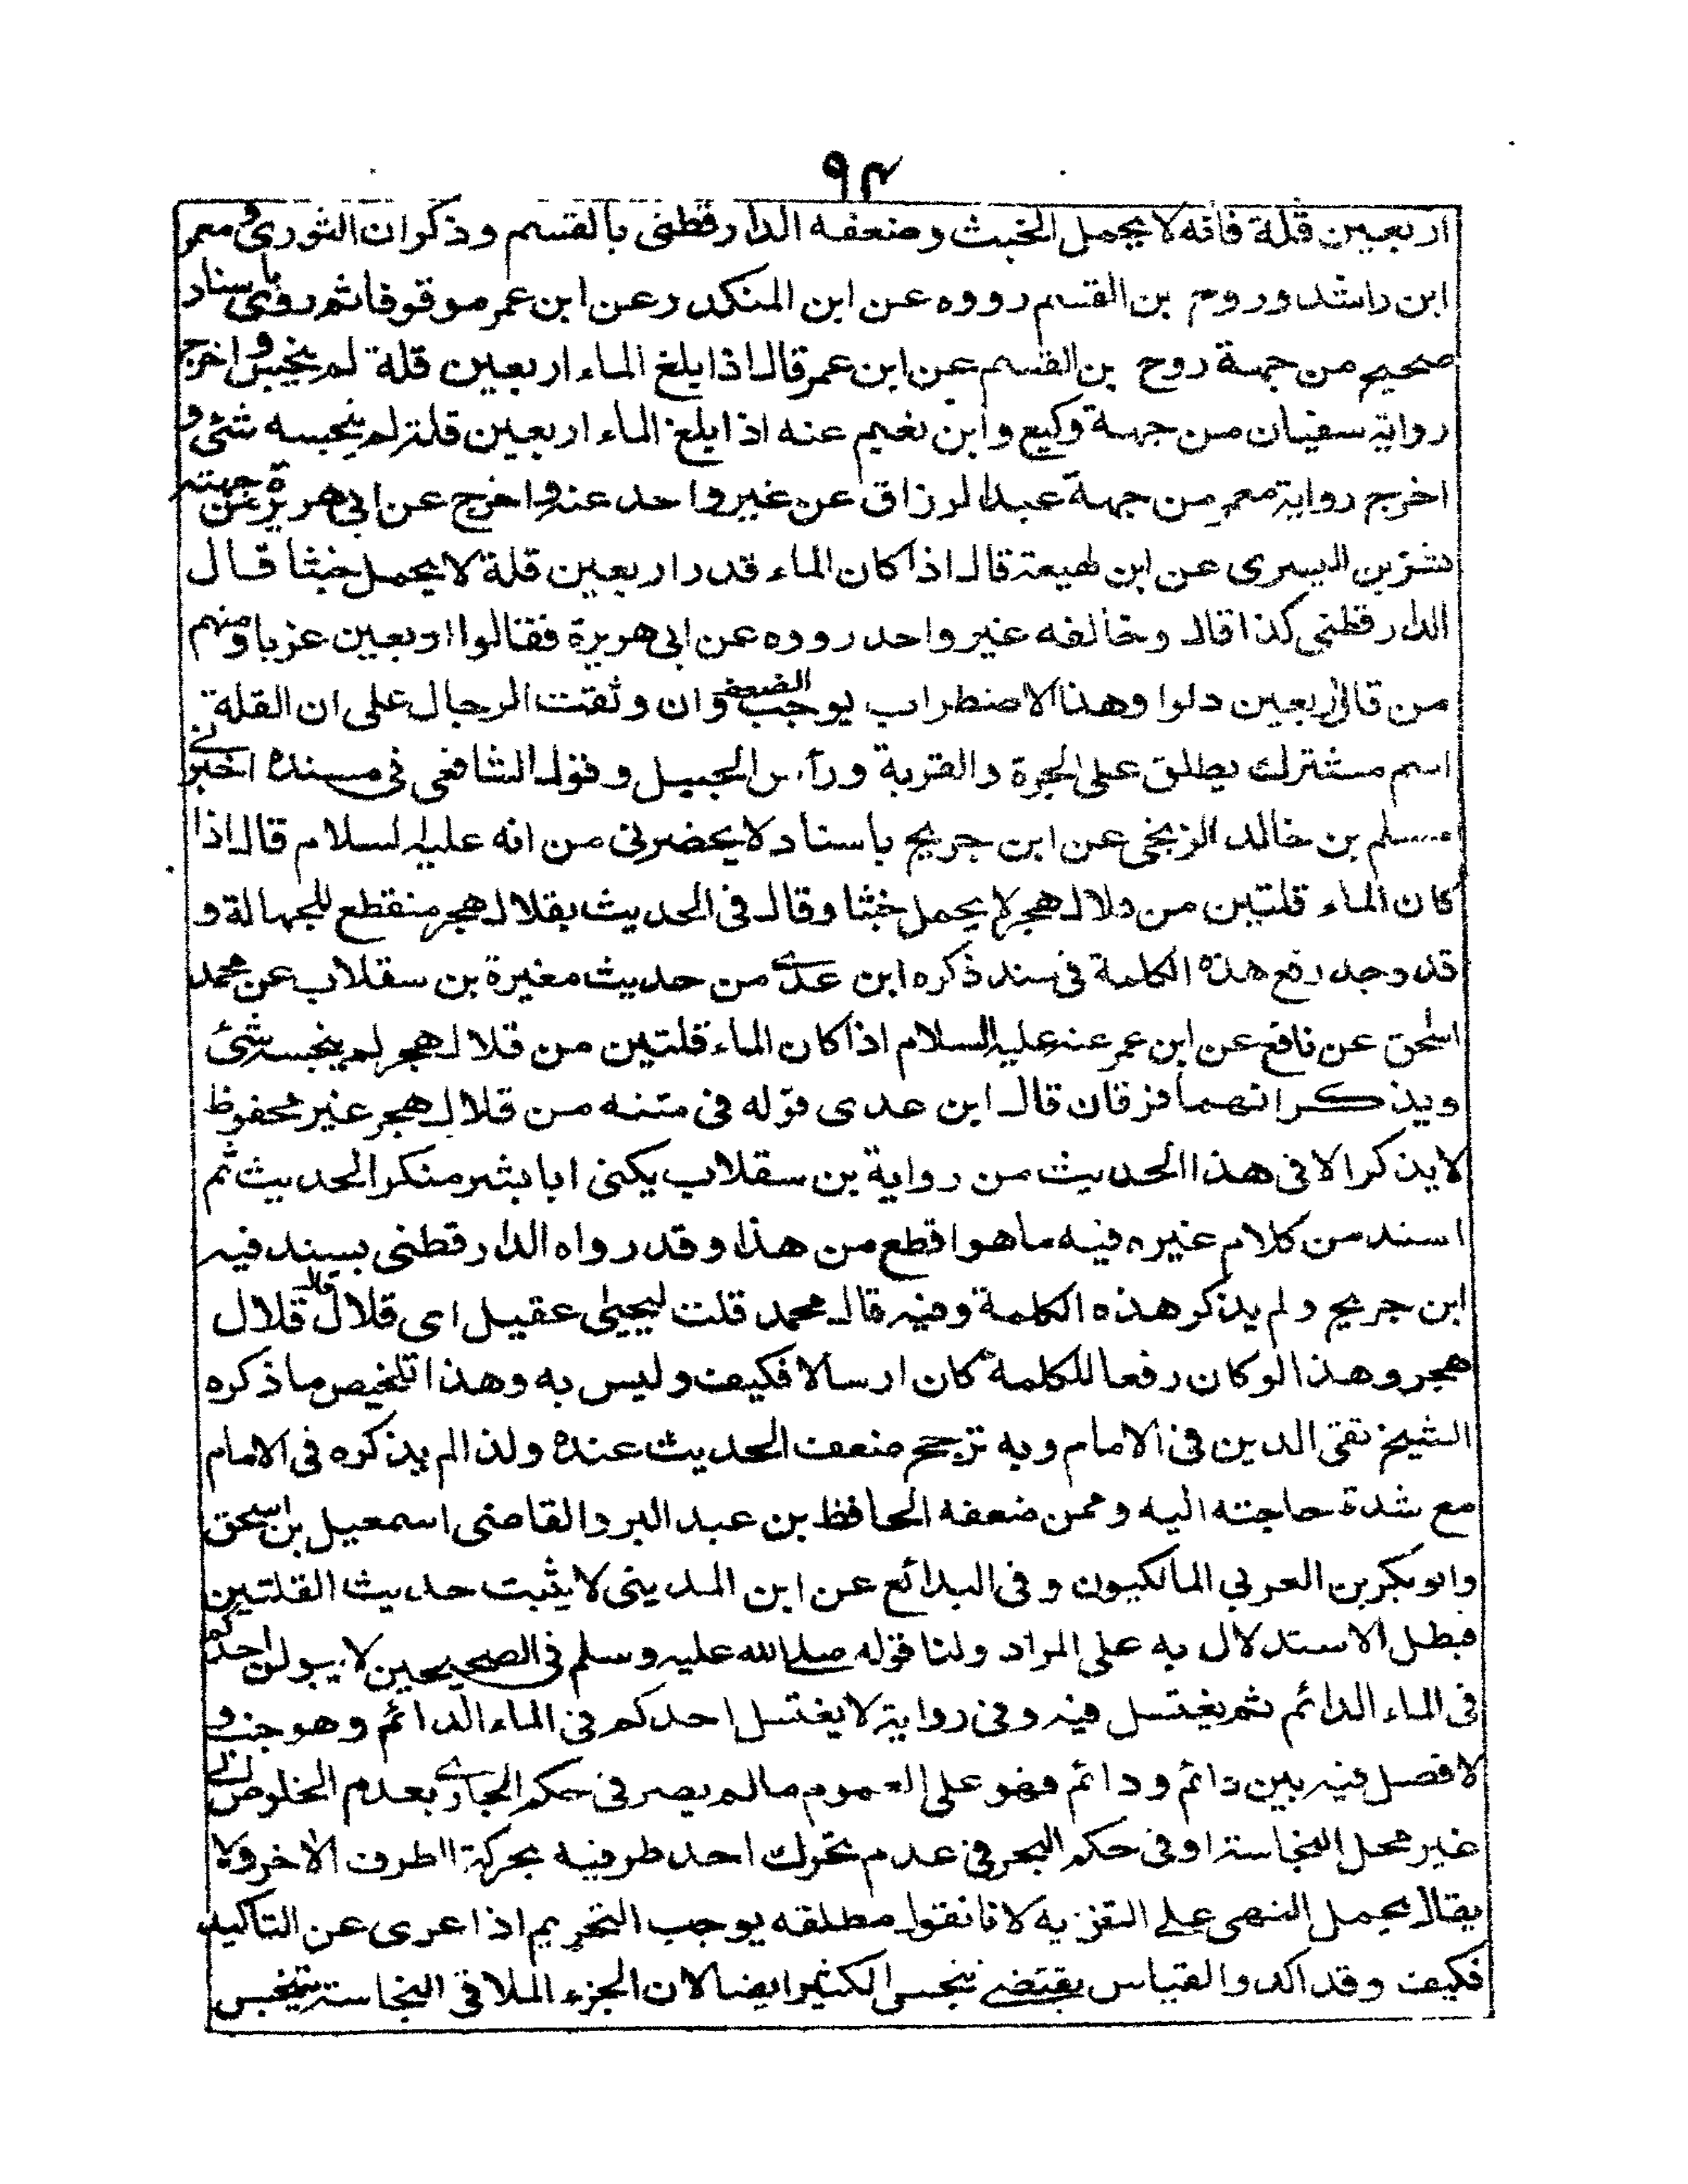 ٩٤
اربعين قلة فانه لا يحمل الخبث وضعفه الدارقطنى بالقسم وذكر ان الثورى ومعمر
ابن راشد وروح بن القسم رووه عن ابن المنكدر عن ابن عمر موقوفا ثم روى باسناد
صحيح من جهة روح بن القسم عن ابن عمر قال اذا بلغ الماء اربعين قلة لم ينجس واخرج
رواية سفيان من جهة وكيع وابن نعيم عنه اذا بلغ الماء اربعين قلة لم ينجسه شئ و
اخرج رواية معمر من جهة عبدالرزاق عن غير واحد عنه واخرج عن ابى هريرة من جهته
بشر بن السرى عن ابن لهيعة قال اذا كان الماء قدر اربعين قلة لا يحمل خبثا قال
الدارقطنى كذا قال وخالفه غير واحد رووه عن ابى هريرة فقالوا اربعين غربا ومنهم
من قال اربعين دلوا وهذا الاضطراب يوجب الضعف وان وثقت الرجال على ان القلة
اسم مشترك يطلق على الجرة والقربة ورأس الجبيل وقول الشافعى فى مسنده اخبرنى
مسلم بن خالد الزنجى عن ابن جريج باسناد لا يحضرنى من انه عليه لسلام قال اذا
كان الماء قلتين من دلال هجر لا يحمل خبثا وقال فى الحديث بقلال هجر منقطع للجهالة و
قد وجد رفع هذه الكلمة فى سند ذكره ابن عدى من حديث مغيرة بن سقلاب عن محمد
اسحق عن نافع عن ابن عمر عنه عليه السلام اذا كان الماء قلتين من قلال هجر لم ينجسه شئ
ويذكر انهما فرقان قال ابن عدى قوله فى متنه من قلال هجر غير محفوظ
لا يذكر الا فى هذا الحديث من رواية بن سقلاب يكنى ابا بشر منكر الحديث ثم
اسند من كلام غيره فيه ما هو اقطع من هذا وقد رواه الدارقطنى بسند فيه
ابن جريج ولم يذكر هذه الكلمة وفيه قال محمد قلت ليحيى عقيل اى قلال قال قلال
هجر وهذا لو كان رفعا للكلمة كان ارسالا فكيف وليس به وهذا تلخيص ما ذكره
الشيخ تقى الدين فى الامام وبه ترجح ضعف الحديث عنده ولذا لم يذكره فى الامام
مع شدة حاجته اليه وممن ضعفه الحافظ بن عبد البر والقاضى اسمعيل بن اسحق
وابو بكر بن العربي المالكيون وفى البدائع عن ابن المدينى لا يثبت حديث القلتين
فبطل الاستدلال به على المراد ولنا قوله صلى الله عليه وسلم فى الصحيحين لا يبولن احدكم
فى الماء الدائم ثم يغتسل فيه وفى رواية لا يغتسل احدكم فى الماء الدائم وهو جنب و
لا فصل فيه بين دائم ودائم فهو على العموم ما لم يصر فى حكم الجارى بعدم الخلوص الى
غير محل النجاسة او فى حكم البحر فى عدم تحرك احد طرفيه بحركة الطرف الاخر ولا
يقال يحمل النهى على التنزيه لانا نقول مطلقه يوجب التحريم اذا عرى عن التاكيد
فكيف وقد اكد والقياس يقتضى تنجس الكثير ايضا لان الجزء الملاقى النجاسة يتنجس